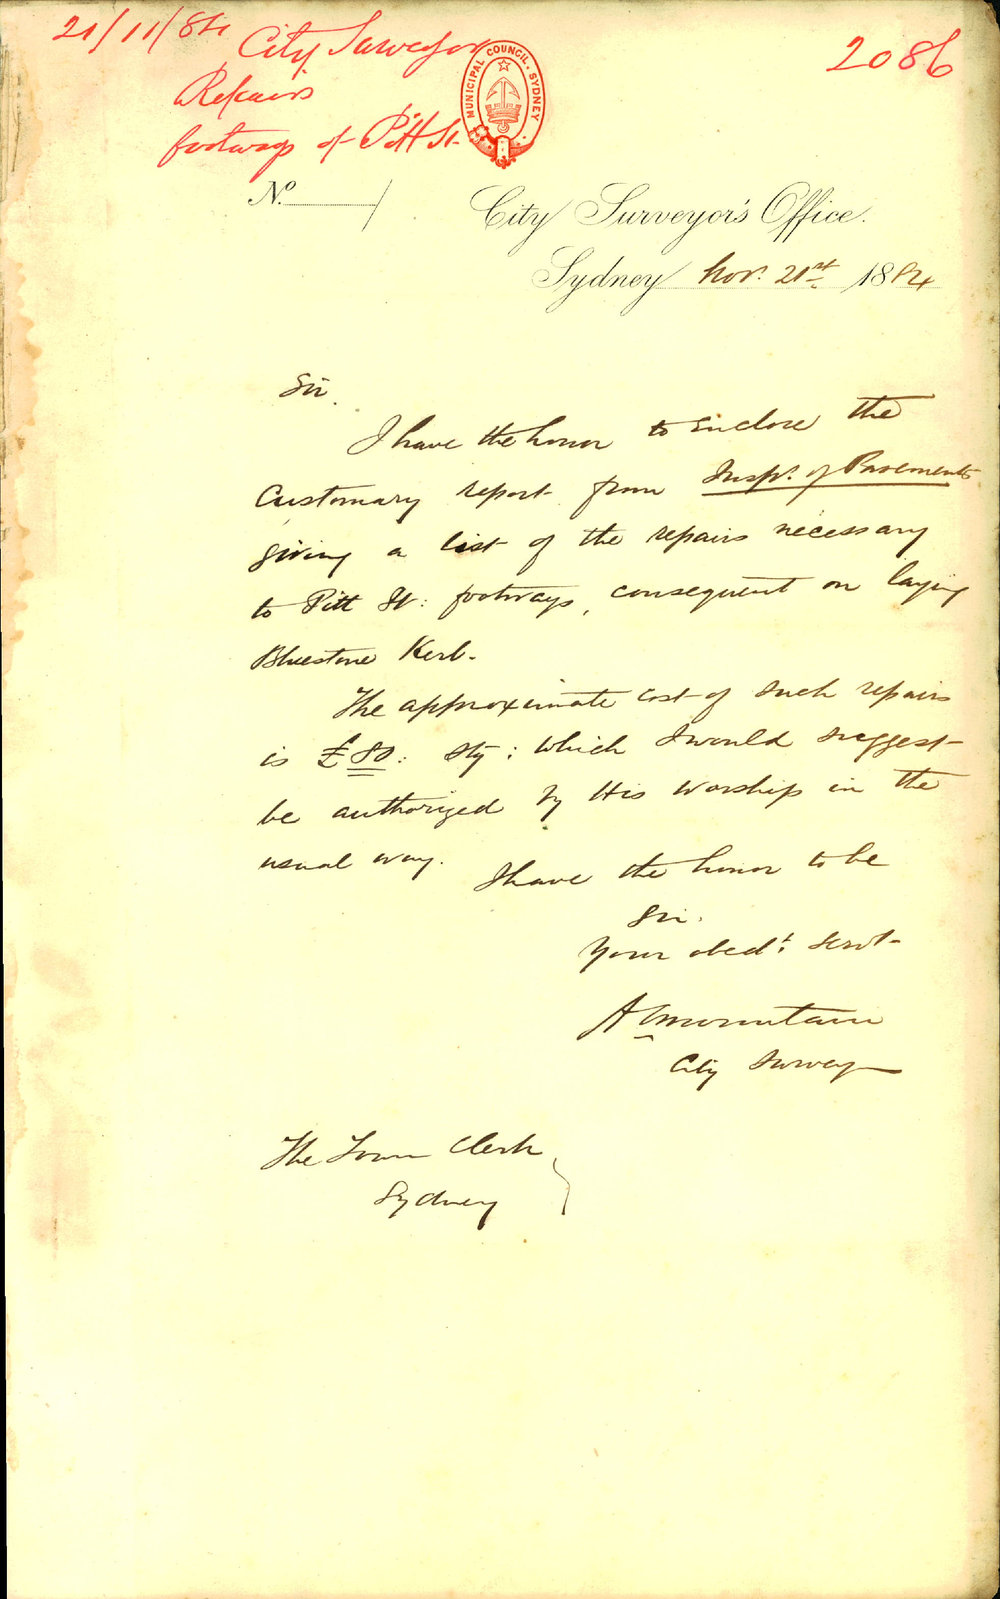 21/11/84
City Surveyor
2086
Repairs
footways of Pitt St.
MUNICIPAL COUNCIL. SYDNEY
No. /
City Surveyor's Office.
Sydney Nov. 21st 1884
Sir.
I have the honor to enclose the
Customary report from Inspr. of Pavements
giving a list of the repairs necessary
to Pitt St: footways, consequent on laying
Bluestone Kerb.
The approximate cost of such repairs
is £80: Stg: which I would suggest
be authorized by His Worship in the
usual way.
I have the honor to be
Sir.
Your obedt. Servt.
A C Mountain
City Surveyor
The Town Clerk
Sydney